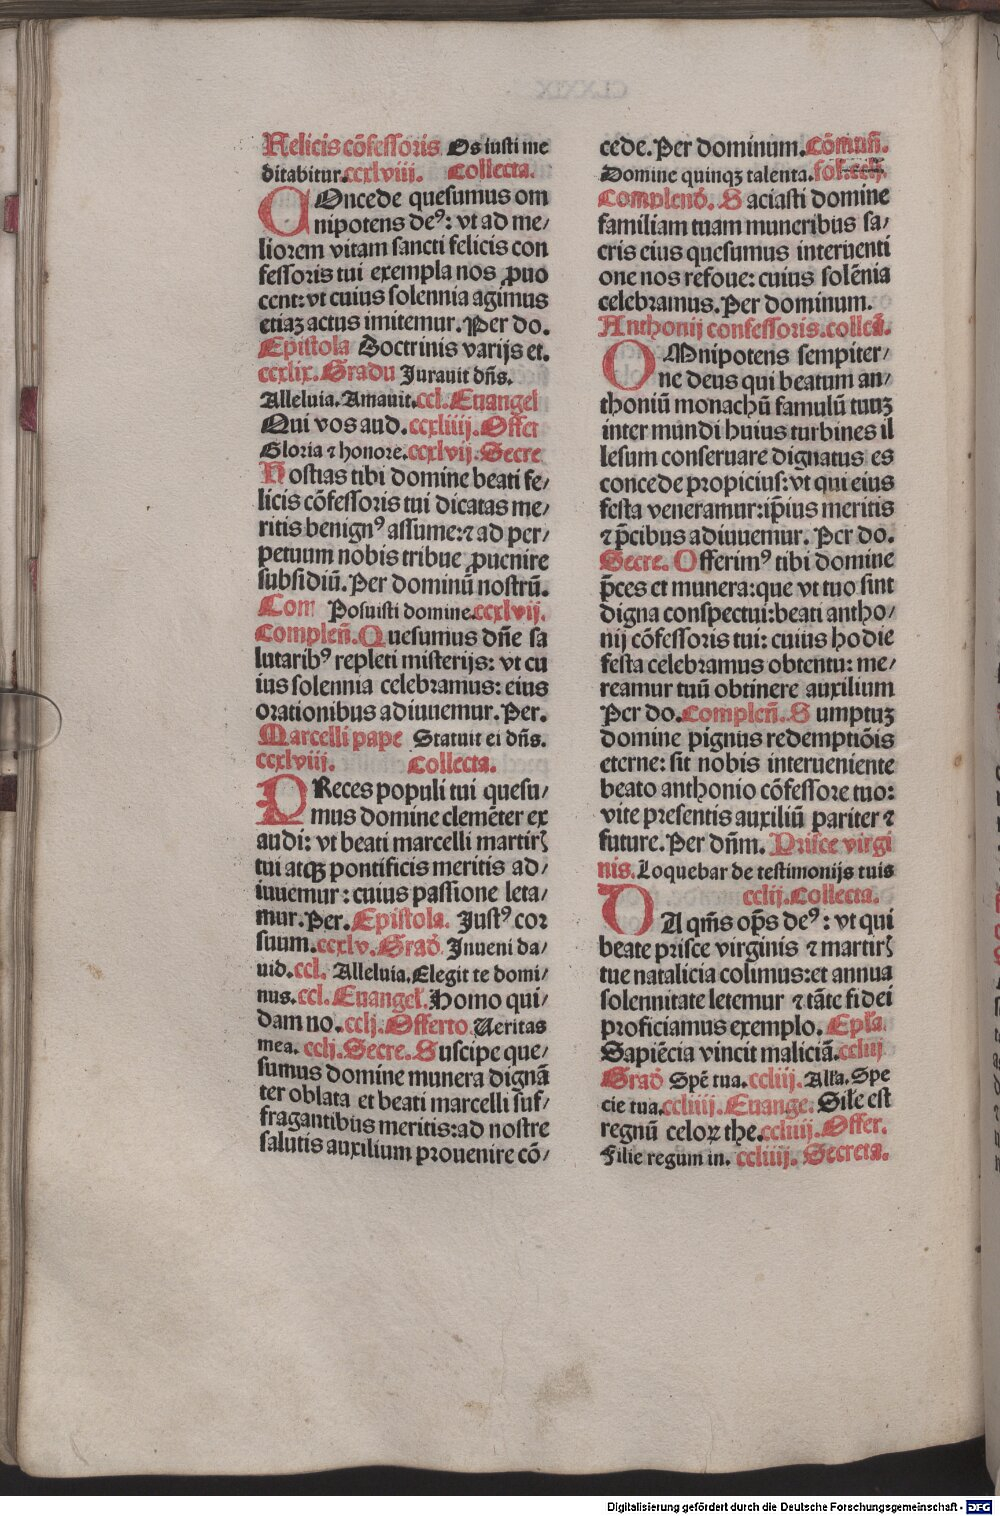 Felicis cōfessoris Os iusti me
ditabitur.ccxlviii. Collecta.
COncede quesumus om
nipotens deꝰ: vt ad me/
liorem vitam sancti felicis con
fessoris tui exempla nos ꝓuo
cent: vt cuius solennia agimus
etiaꝫ actus imitemur. Per do.
Epistola Doctrinis varijs et.
ccxlix. Gradu Jurauit dn̄s.
Alleluia. Amauit. ccl. Euangel
Qui vos aud. ccxliiij. Offer
Gloria ⁊ honore. ccxlvij. Secre
Hostias tibi domine beati fe/
licis cōfessoris tui dicatas me/
ritis benignꝰ assume: ⁊ ad per/
petuum nobis tribue ꝓuenire
subsidiū. Per dominū nostrū.
Com Posuisti domine. ccxlvij.
Complen̄. Quesumus dn̄e sa
lutaribꝰ repleti misterijs: vt cu
ius solennia celebramus: eius
orationibus adiuuemur. Per.
Marcelli pape Statuit ei dn̄s.
ccxlviij. Collecta.
PReces populi tui quesu/
mus domine clemēter ex
audi: vt beati marcelli martirꝭ
tui atqꝫ pontificis meritis ad/
iuuemur: cuius passione leta/
mur. Per. Epistola. Justꝰ cor
suum. ccxlv. Grad̄ Jnueni da/
uid. ccl. Alleluia. Elegit te domi/
nus. ccl. Euangel̄. Homo qui/
dam no. cclj. Offerto Ueritas
mea. cclj. Secre. Suscipe que/
sumus domine munera dignā
ter oblata et beati marcelli suf/
fragantibus meritis: ad nostre
salutis auxilium prouenire cō/
cede. Per dominum. Cōmun̄.
Domine quinqꝫ talenta. fol. cclj.
Complend̄. Saciasti domine
familiam tuam muneribus sa/
cris eius quesumus interuenti
one nos refoue: cuius solēnia
celebramus. Per dominum.
Anthonij confessoris. collcā.
OMnipotens sempiter/
ne deus qui beatum an/
thoniū monachū famulū tuuꝫ
inter mundi huius turbines il
lesum conseruare dignatus es
concede propicius: vt qui eius
festa veneramur: ip̄ius meritis
⁊ p̄cibus adiuuemur. Per do.
Secre. Offerimꝰ tibi domine
p̄ces et munera: que vt tuo sint
digna conspectui: beati antho/
nij cōfessoris tui: cuius hodie
festa celebramus obtentu: me/
reamur tuū obtinere auxilium
Per do. Complen̄. Sumptuꝫ
domine pignus redemptiōis
eterne: sit nobis interueniente
beato anthonio cōfessore tuo:
vite presentis auxiliū pariter ⁊
future. Per dn̄m. Prisce virgi
nis. Loquebar de testimonijs tuis
cclij. Collecta.
DA qm̄s op̄s deꝰ: vt qui
beate prisce virginis ⁊ martirꝭ
tue natalicia colimus: et annua
solennitate letemur ⁊ tāte fidei
proficiamus exemplo. Epl̄a
Sapiēcia vincit maliciā. ccliij
Grad̄ Spē tua. ccliij. All̄a. Spe
cie tua. ccliiij. Euange. Sil̄e est
regnū celoꝝ the. ccliiij. Offer.
Filie regum in. ccliiij. Secreta.
Digitalisierung gefördert durch die Deutsche Forschungsgemeinschaft - DFG